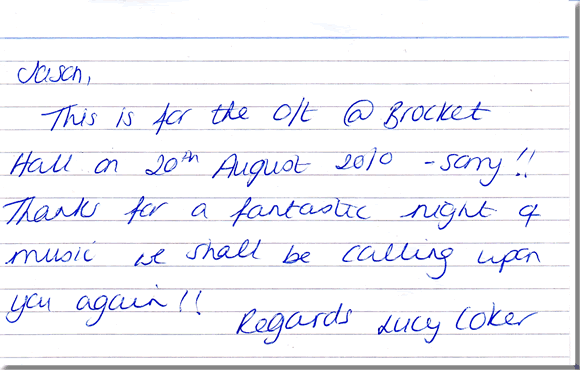 Jason,
This is for the O/t @ Brocket
Hall on 20th August 2010 - sorry!!
Thanks for a fantastic night of
music we shall be calling upon
you again!!
Regards Lucy Coker